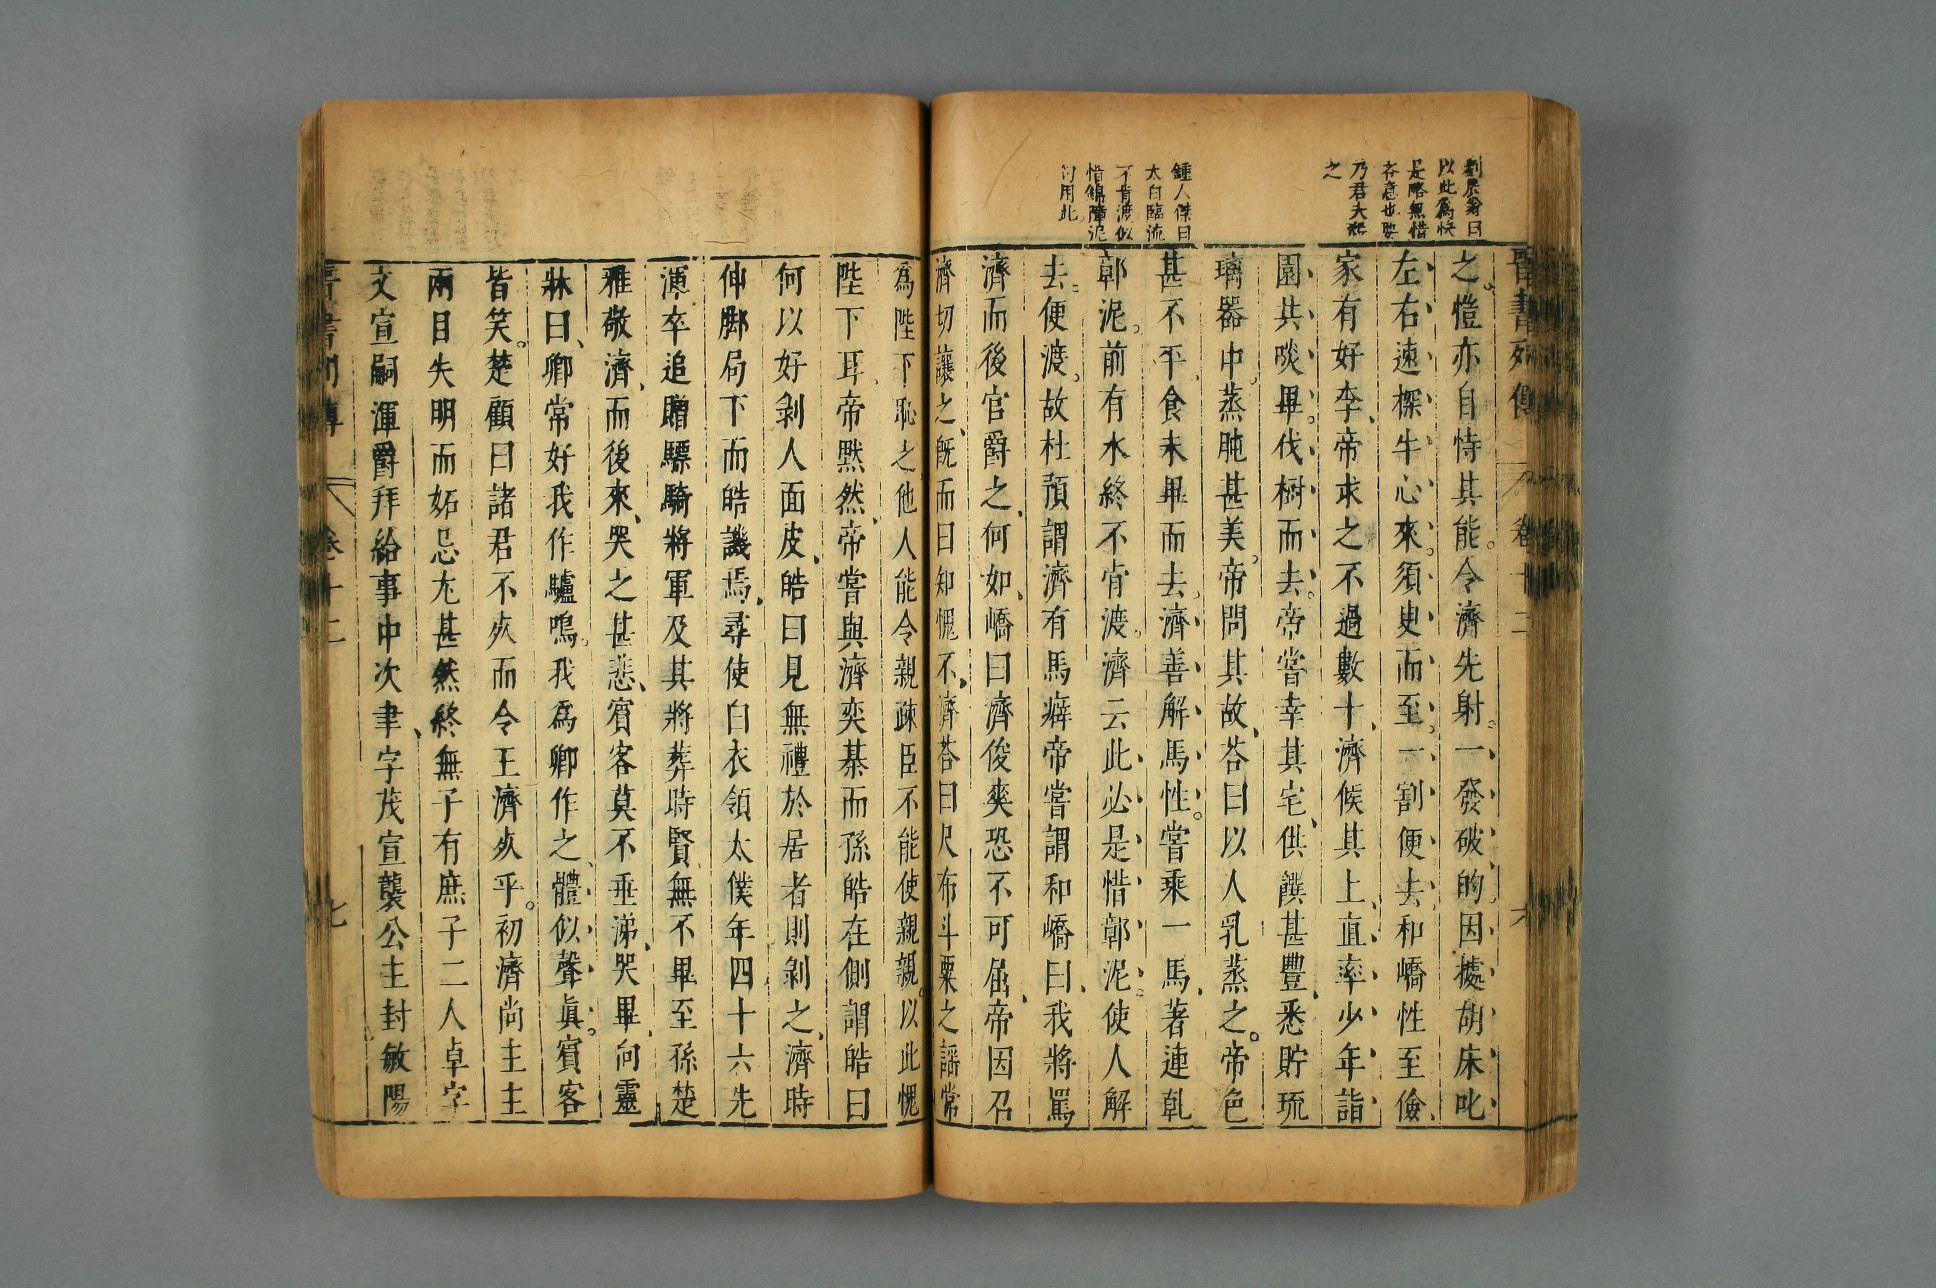 劉辰翁曰
以此爲快
是略無惜
吝意也要
乃君夫殺
之
鍾人傑曰
太白臨流
不肯渡似
惜錦障泥
句用此
晉書列傳 卷十二 六
之愷亦自恃其能令濟先射一發破的因據胡床叱
左右速探牛心來須臾而至一割便去和嶠性至儉
家有好李帝求之不過數十濟候其上直率少年詣
園共啖畢伐樹而去帝嘗幸其宅供饌甚豐悉貯琉
璃器中蒸肫甚美帝問其故荅曰以人乳蒸之帝色
甚不平食未畢而去濟善解馬性嘗乘一馬著連乹
鄣泥前有水終不肯渡濟云此必是惜鄣泥使人解
去便渡故杜預謂濟有馬癖帝嘗謂和嶠曰我將罵
濟而後官爵之何如嶠曰濟俊爽恐不可屈帝因召
濟切讓之旣而曰知愧不濟荅曰尺布斗粟之謡常
爲陛下恥之他人能令親踈臣不能使親親以此愧
陛下耳帝黙然帝嘗與濟奕棊而孫皓在側謂皓曰
何以好剝人面皮皓曰見無禮於居者則剝之濟時
伸脚局下而皓譏焉尋使白衣領太僕年四十六先
渾卒追贈驃騎將軍及其將葬時賢無不畢至孫楚
雅敬濟而後來哭之甚悲賓客莫不垂涕哭畢向靈
牀曰卿常好我作驢鳴我爲卿作之體似聲眞賓客
皆笑楚顧曰諸君不死而令王濟死乎初濟尚主主
兩目失明而妬忌尤甚然終無子有庶子二人卓字
文宣嗣渾爵拜給事中次聿字茂宣襲公主封敏陽
晉書列傳 卷十二 七